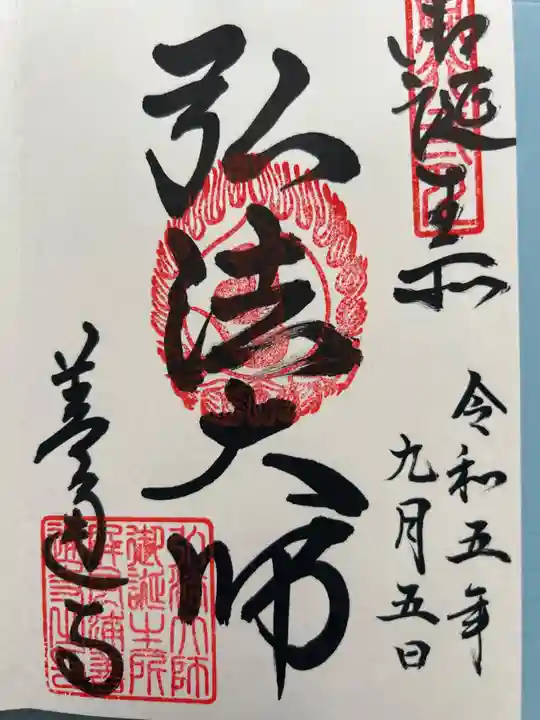 御誕生所
令和五年
九月五日
弘法大師
善通寺